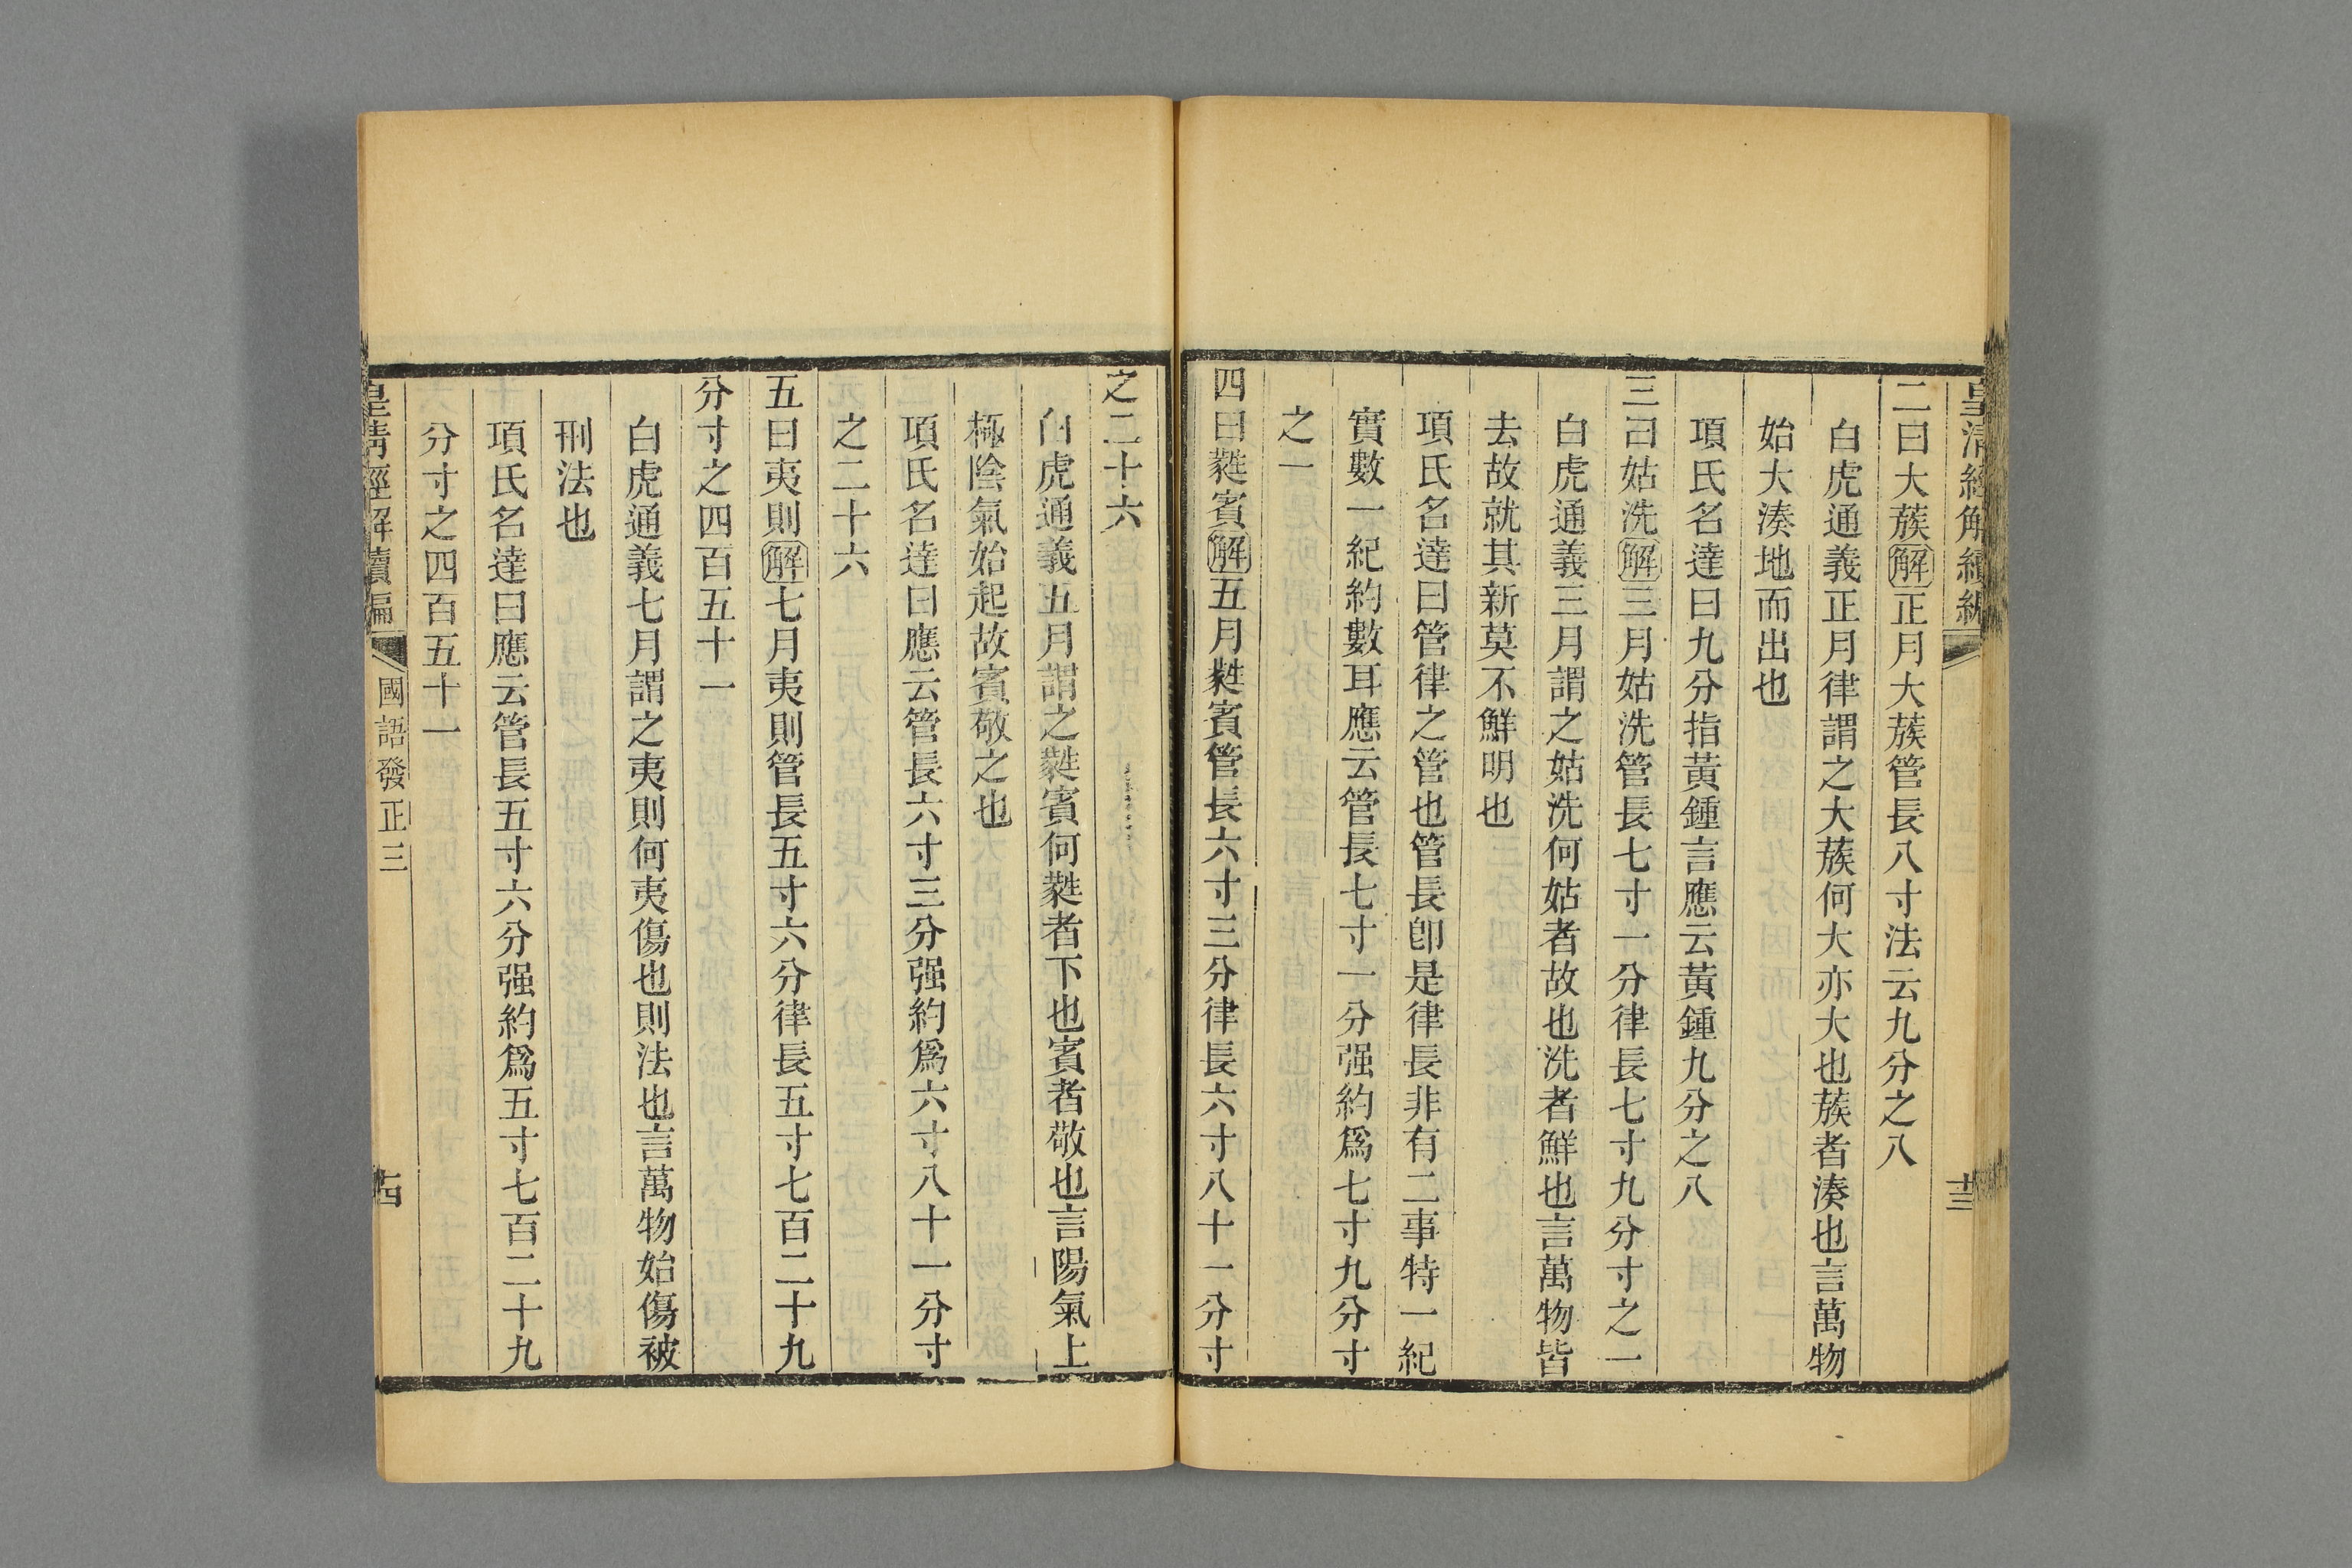 皇清經解續編
二曰大蔟解正月大蔟管長八寸法云九分之八
白虎通義正月律謂之大蔟何大亦大也蔟者湊也言萬物
始大湊地而出也
項氏名達曰九分指黃鍾言應云黃鍾九分之八
三曰姑洗解三月姑洗管長七寸一分律長七寸九分寸之一
白虎通義三月謂之姑洗何姑者故也洗者鮮也言萬物皆
去故就其新莫不鮮明也
項氏名達曰管律之管也管長卽是律長非有二事特一紀
實數一紀約數耳應云管長七寸一分强約爲七寸九分寸
之一
四曰蕤賓解五月蕤賓管長六寸三分律長六寸八十一分寸
之二十六
白虎通義五月謂之蕤賓何蕤者下也賓者敬也言陽氣上
極陰氣始起故賓敬之也
項氏名達曰應云管長六寸三分强約爲六寸八十一分寸
之二十六
五曰夷則解七月夷則管長五寸六分律長五寸七百二十九
分寸之四百五十一
白虎通義七月謂之夷則何夷傷也則法也言萬物始傷被
刑法也
項氏名達曰應云管長五寸六分强約爲五寸七百二十九
分寸之四百五十一
皇清經解續編 國語發正三